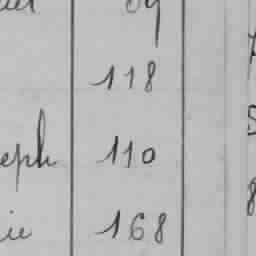 118
eph 110
ie 168